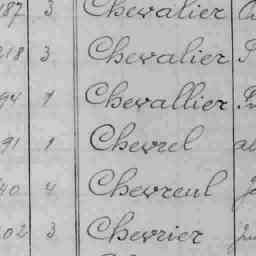 187 3 Chevalier
218 3 Chevalier
94 1 Chevallier
91 1 Chevrel
40 4 Chevreul
202 3 Chevrier